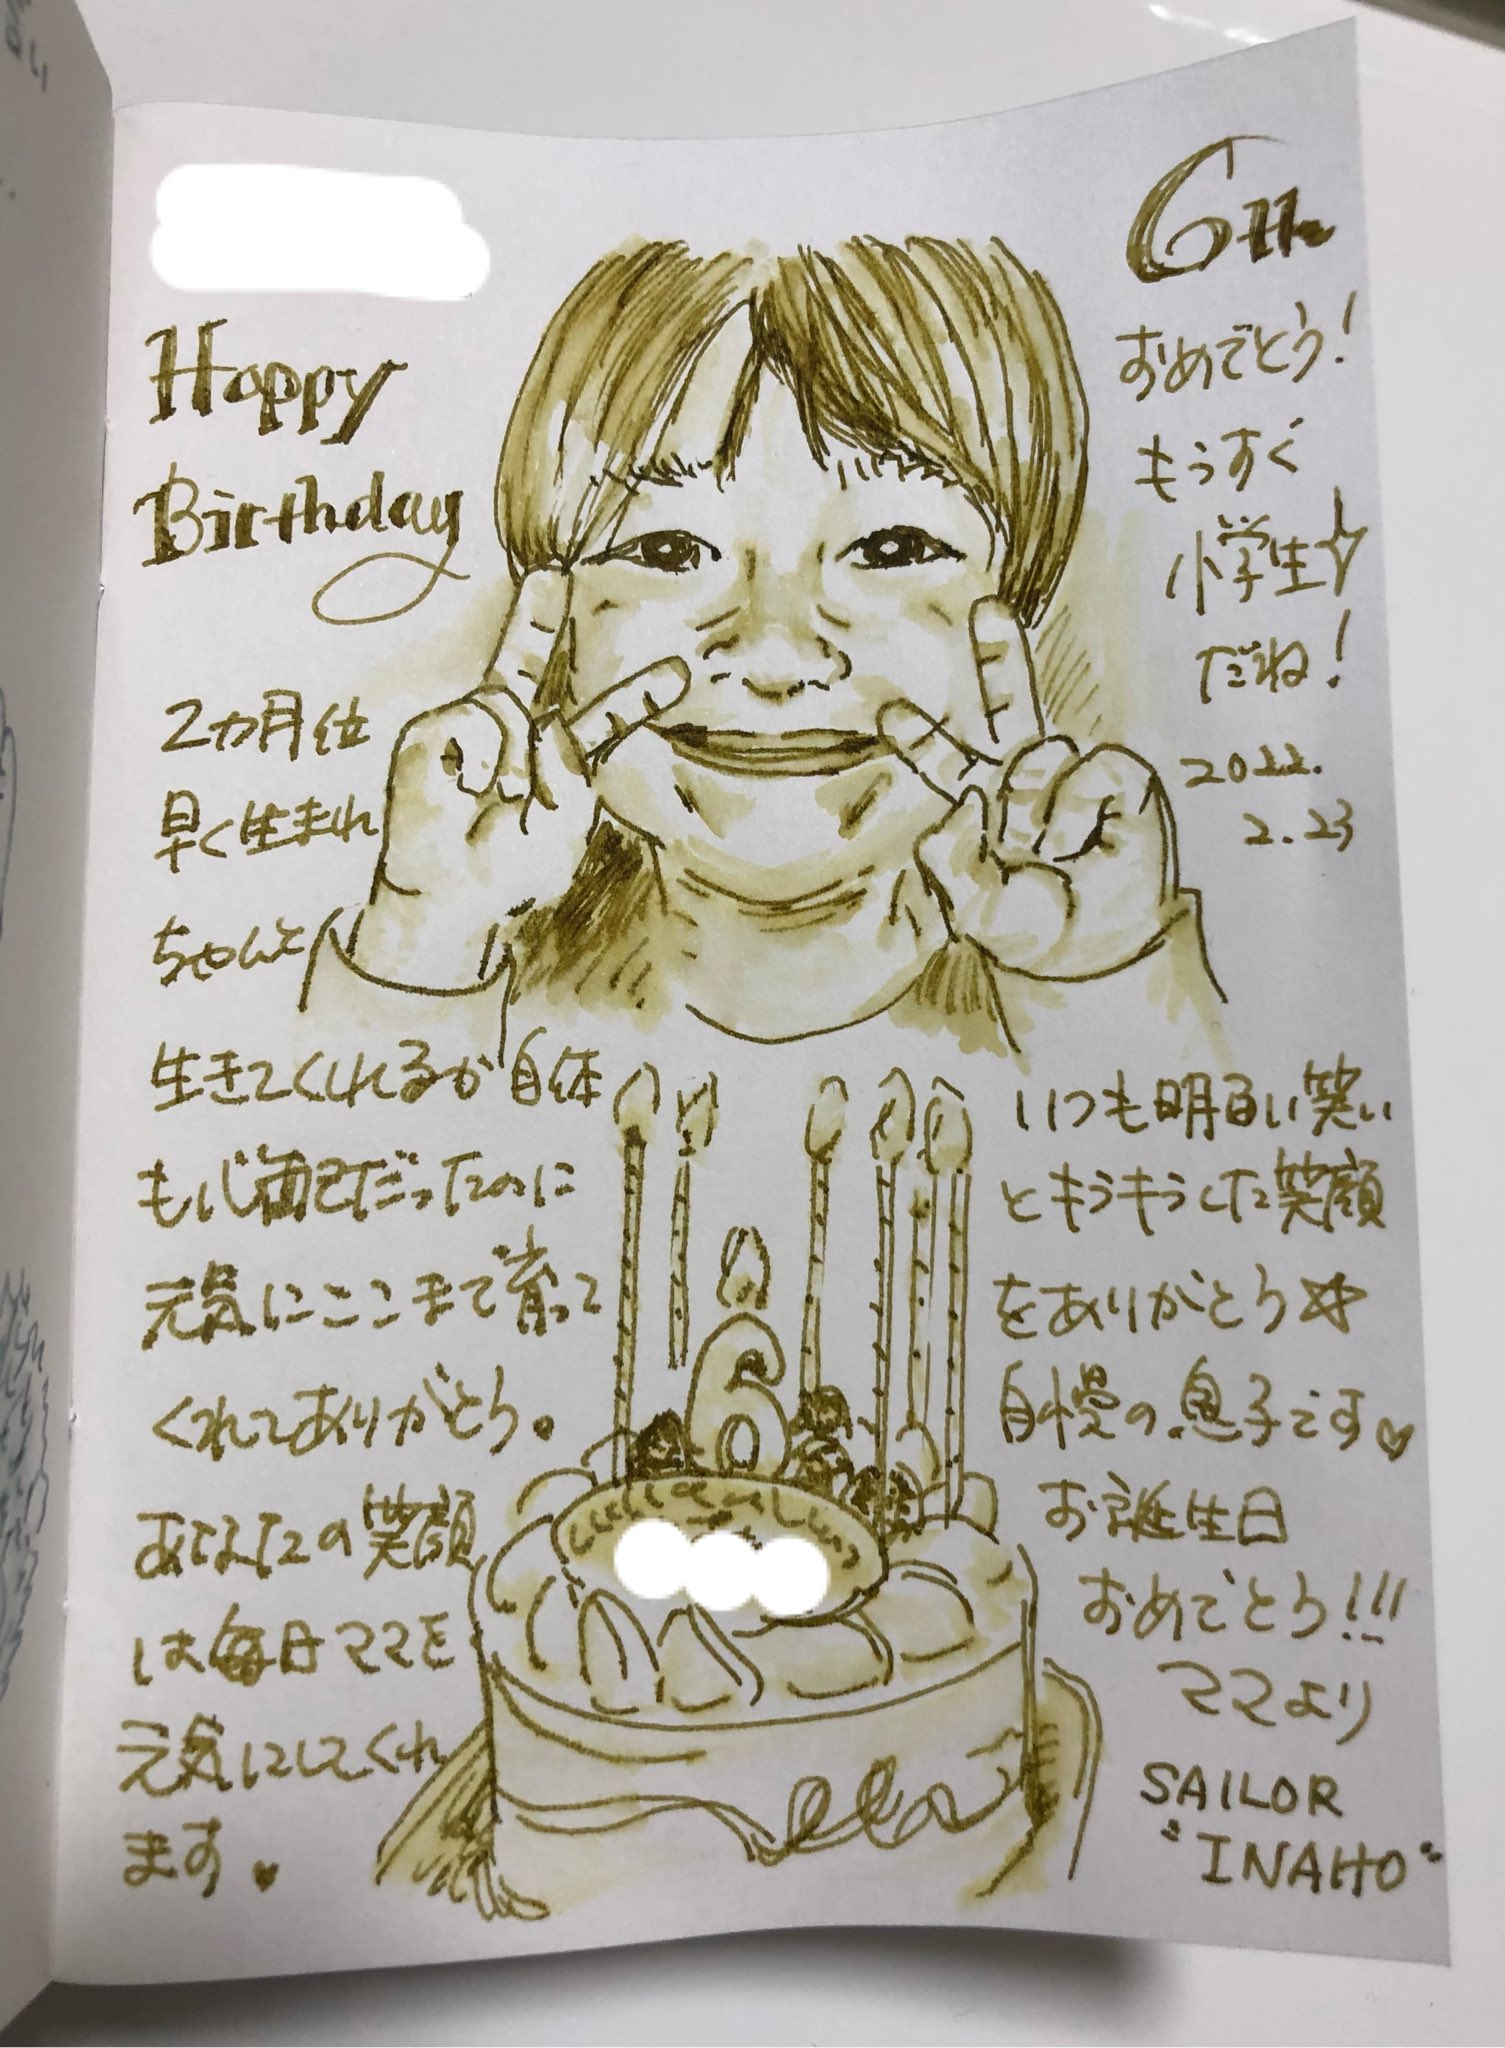 Happy
Birthday
2カ月位
早く生まれ
ちゃんと
生きてくれるか自体
も心配だったのに
元気にここまで育って
くれてありがとう。
あなたの笑顔
は毎日ママを
元気にしてくれ
ます♥
6th
おめでとう!
もうすぐ
小学生☆
だね!
2022.
2.23
いつも明るい笑い
ともうもうした笑顔
をありがとう☆
自慢の息子です♡
お誕生日
おめでとう!!!
ママより
SAILOR
"INAHO"
6